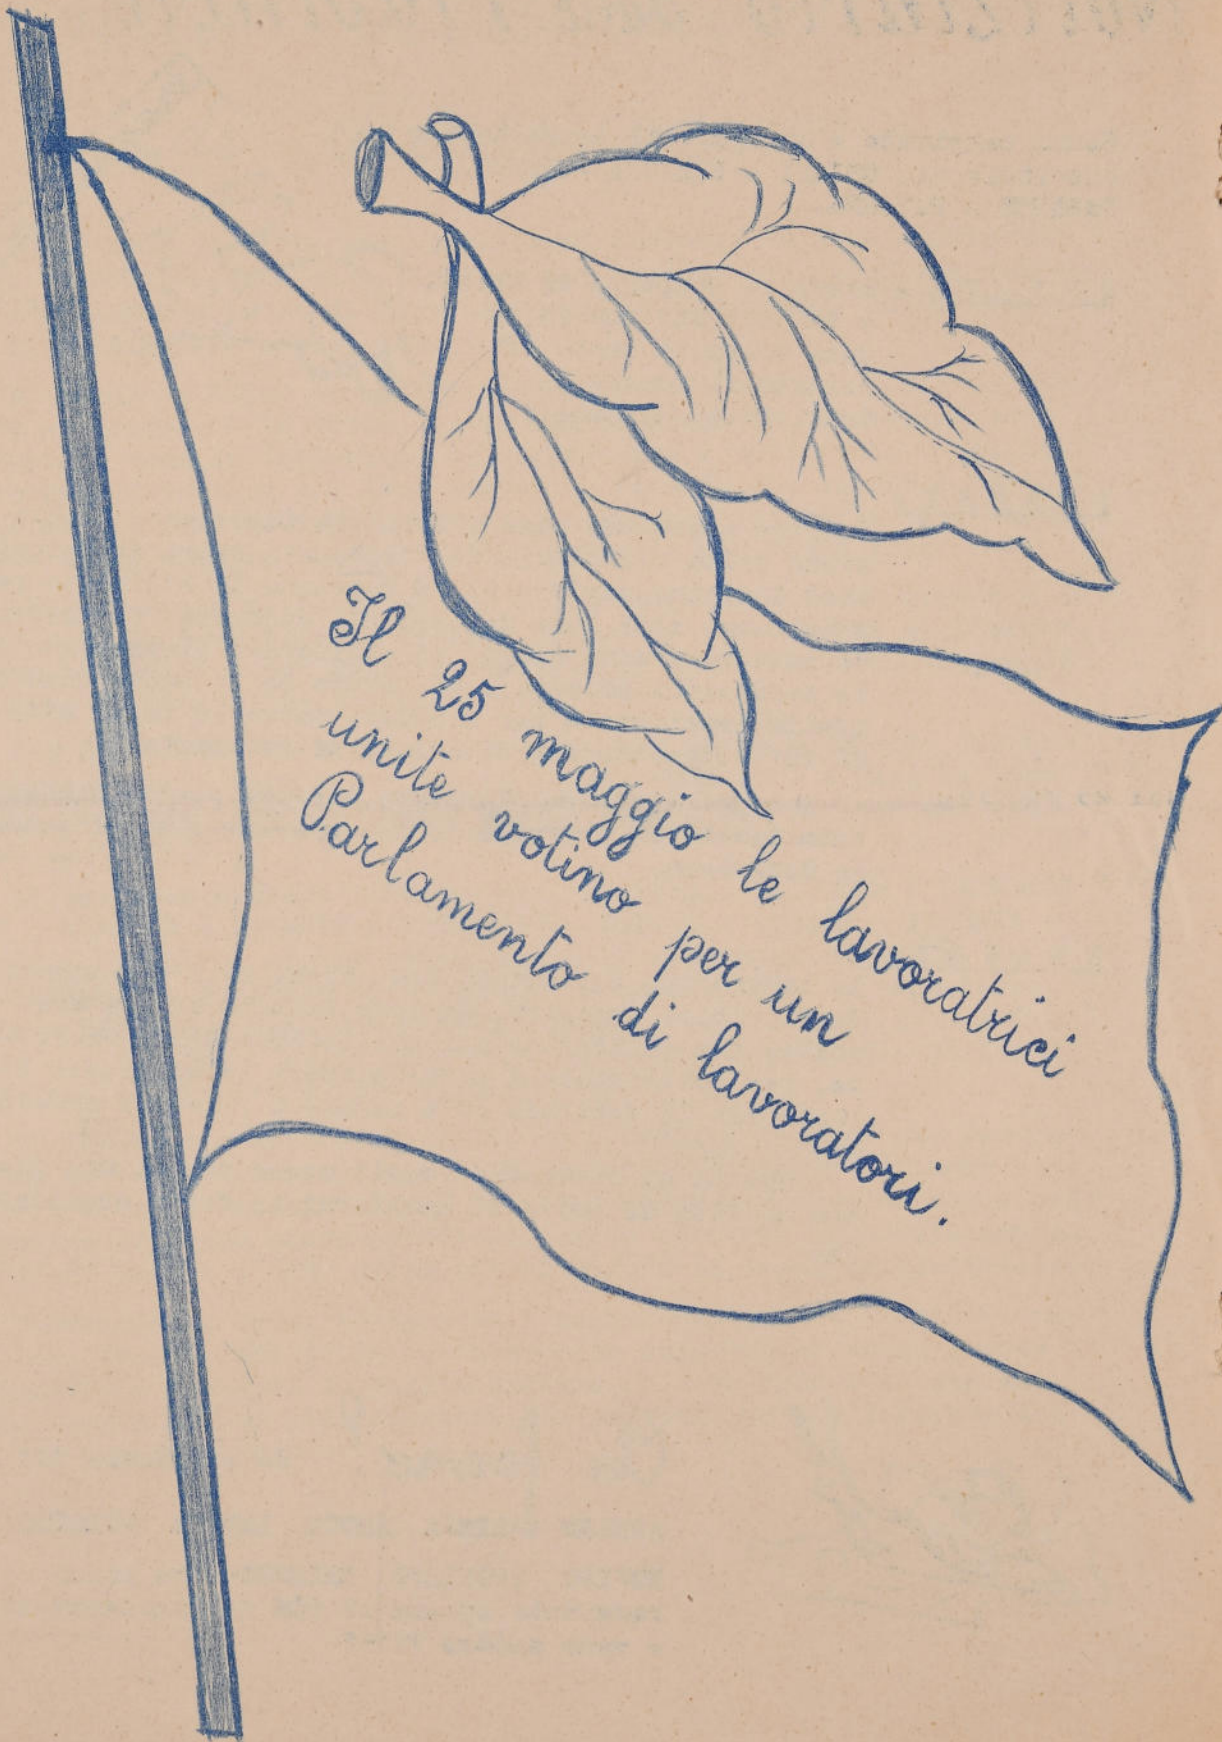 Il 25 maggio le lavoratrici
unite votino per un
Parlamento di lavoratori.